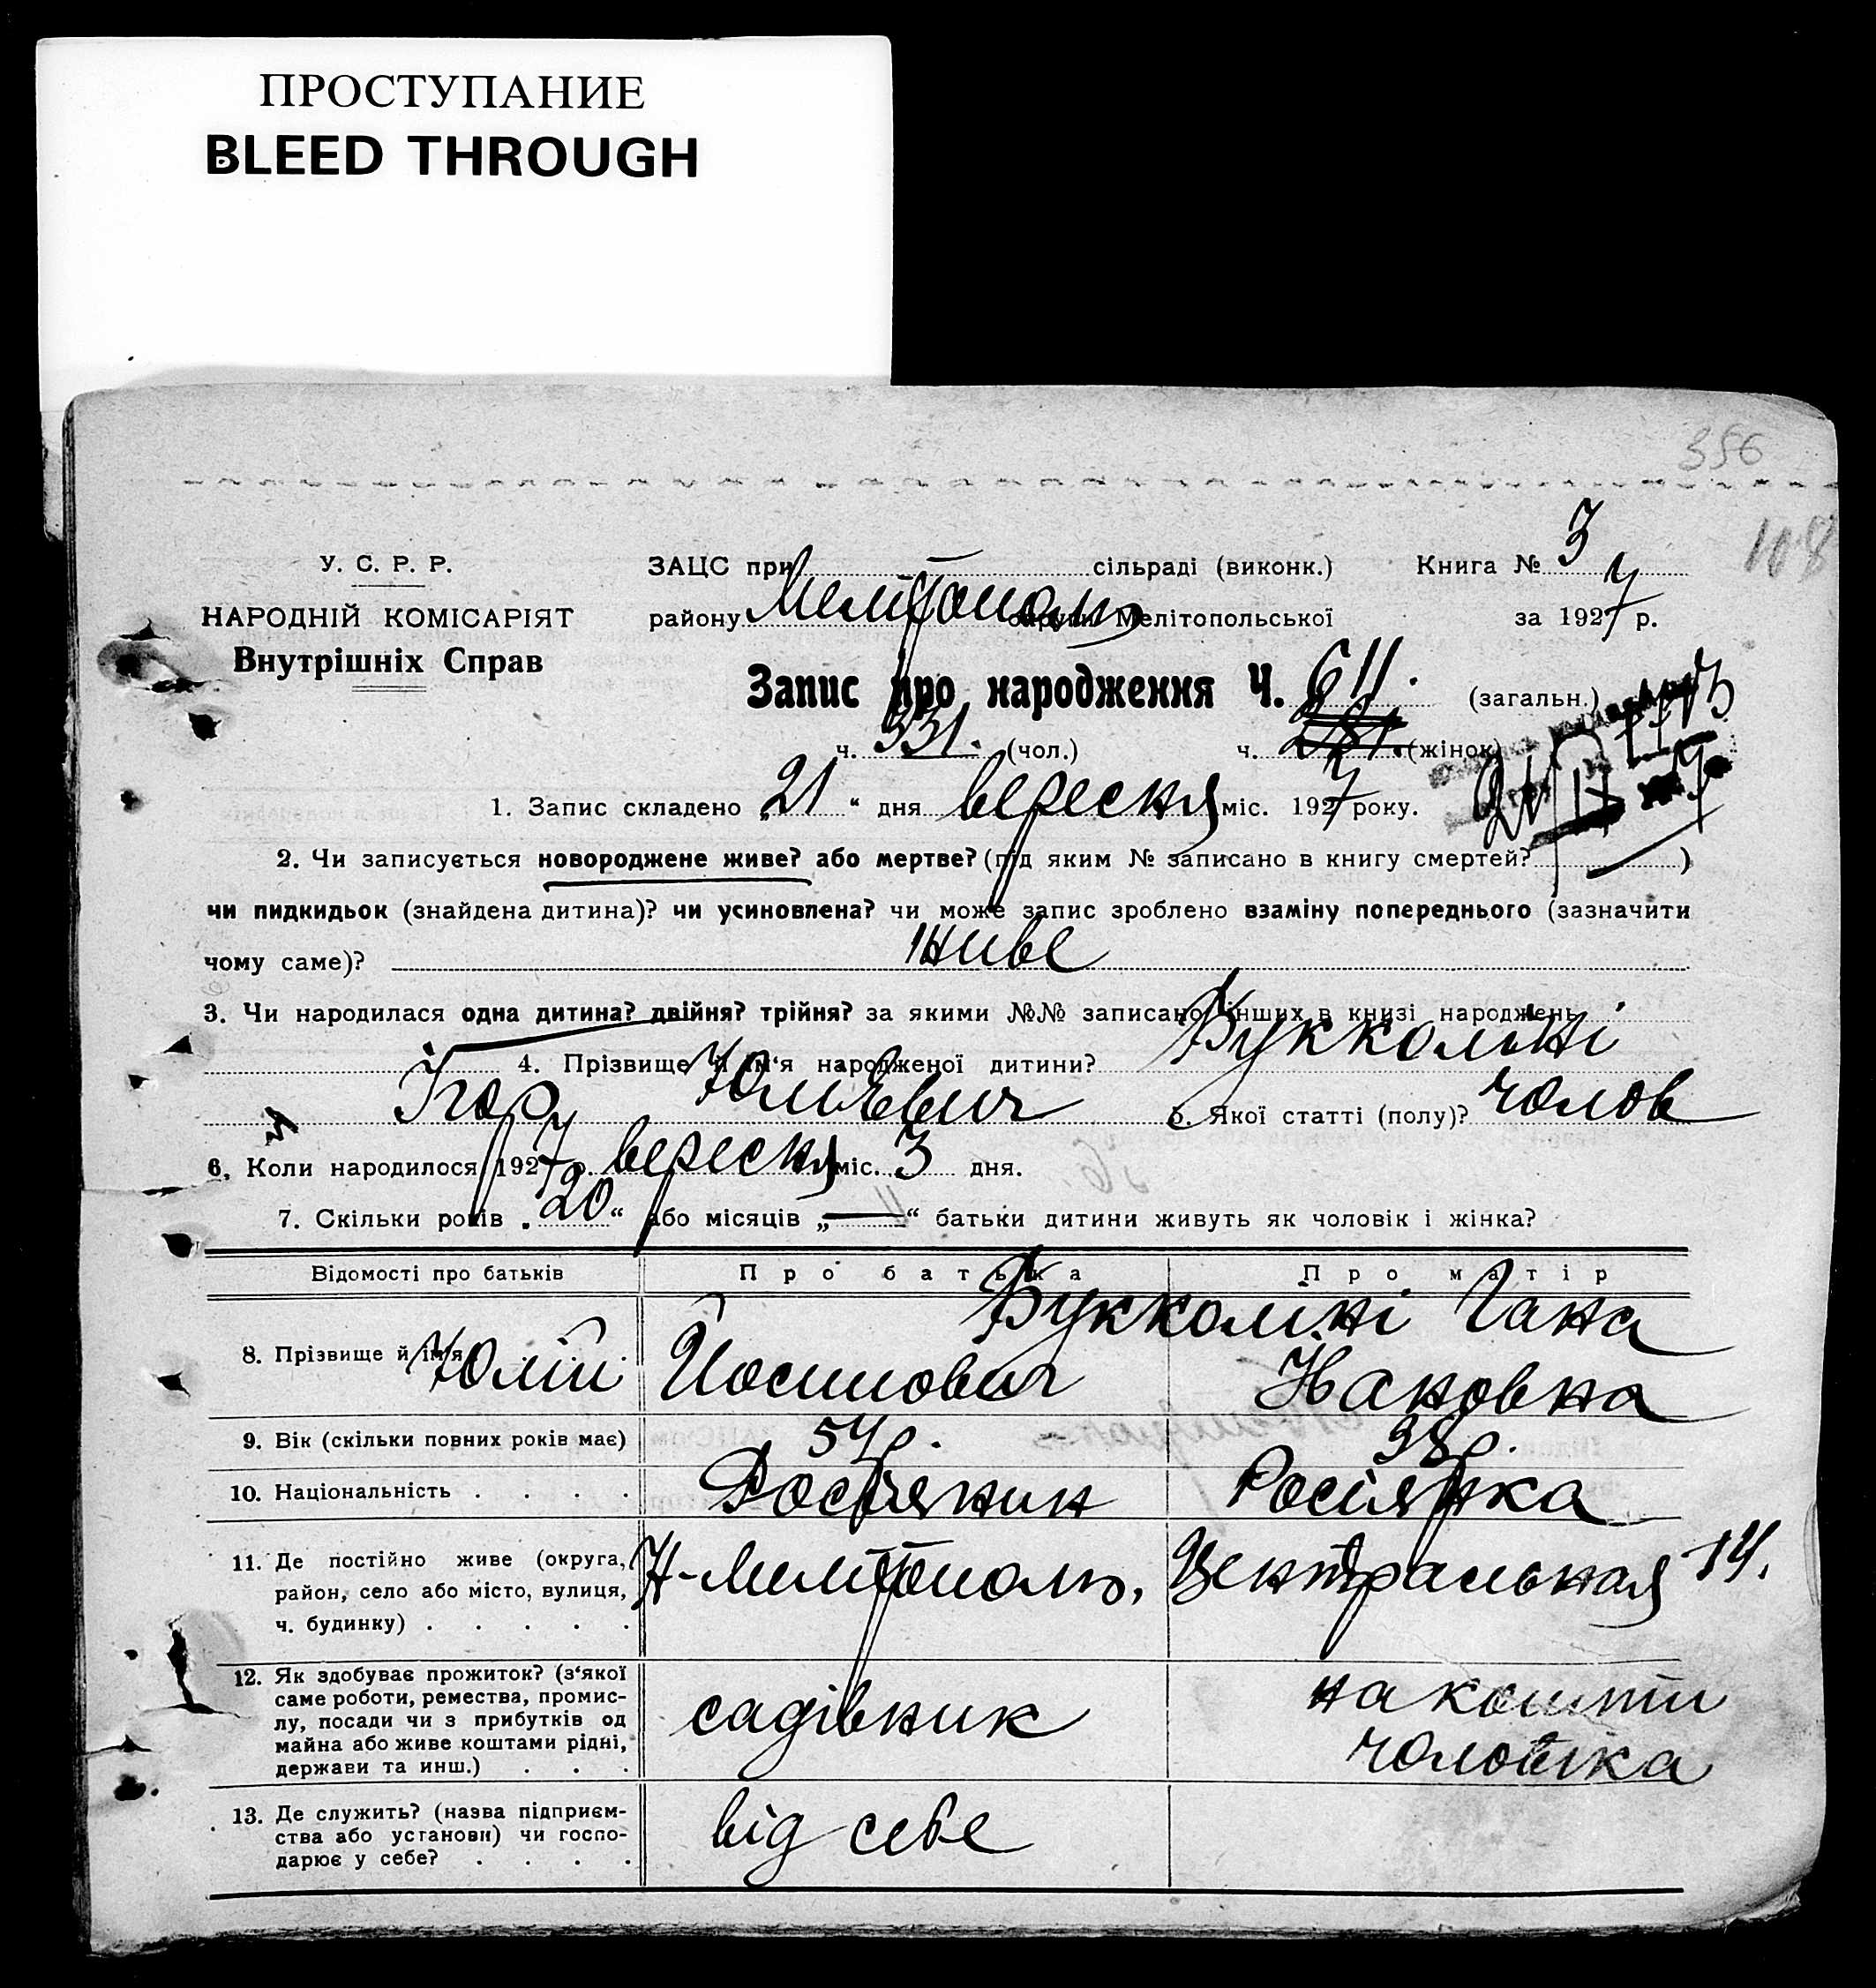 ПРОСТУПАНИЕ
BLEED THROUGH
356
108
У. С. Р. Р.
НАРОДНІЙ КОМІСАРІЯТ
Внутрішніх Справ
ЗАЦС при сільраді (виконк.) Книга № 3
району Мелітополь округи Мелітопольської за 1927 р.
Запис про народження Ч. 611. (загальн.)
ч. 331. (чол.) ч. 281. (жінок)
1. Запис складено „21“ дня вересня міс. 1927 року.
2. Чи записується новороджене живе? або мертве? (під яким № записано в книгу смертей? )
чи пидкидьок (знайдена дитина)? чи усиновлена? чи може запис зроблено взаміну попереднього (зазначити
чому саме)? живе
3. Чи народилася одна дитина? двійня? трійня? за якими №№ записано інших в книзі народжень
4. Прізвище й ім‘я народженої дитини? Букколіні
Ігор Юлієвич 5. Якої статті (полу)? чолов
6. Коли народилося 1927 р. вересня міс. 3 дня.
7. Скільки років „20“ або місяців „—“ батьки дитини живуть як чоловік і жінка?
Відомості про батьків Про батька Про матір
8. Прізвище й ім‘я Букколіні Гана
Юлій Йосипович Івановна
9. Вік (скільки повних років має) 54 р. 38 р.
10. Національність . . . . Росіянин Росіянка
11. Де постійно живе (округа, Н-Мелітополь, Центральная 14.
район, село або місто, вулиця,
ч. будинку) . . . . .
12. Як здобуває прожиток? (з‘якої
саме роботи, ремества, промис-
лу, посади чи з прибутків од
майна або живе коштами рідні,
держави та инш.) . . .
садівник на кошти
чоловіка
13. Де служить? (назва підприєм-
ства або установи) чи госпо-
дарює у себе? . . . .
від себе